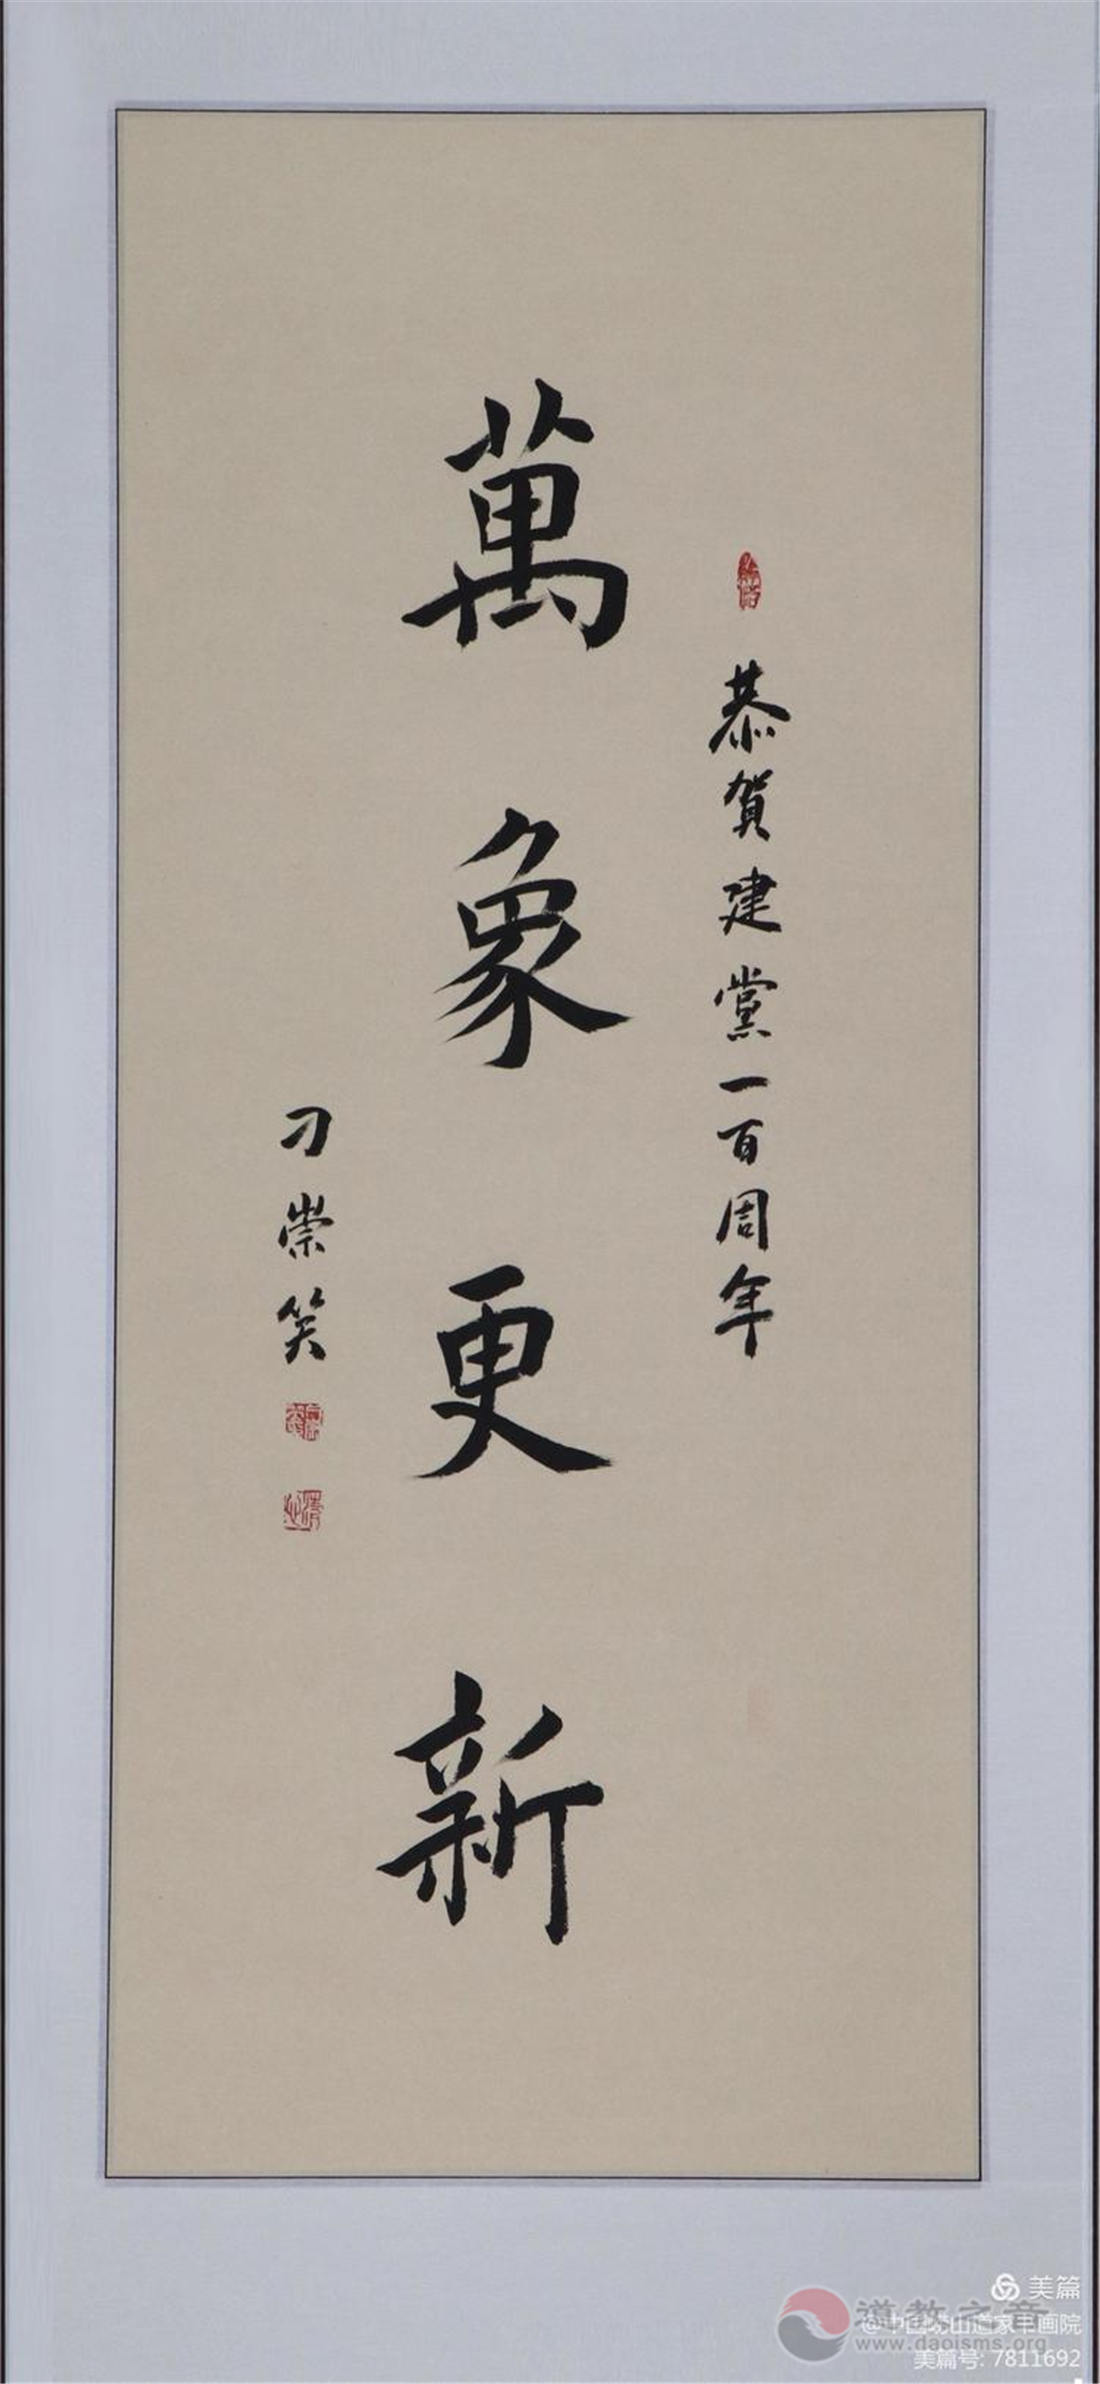 恭賀建黨一百周年
萬象更新
刁崇笑
美篇
道教之音
@中国崂山道家书画院
www.daoisms.org
美篇号: 7811692